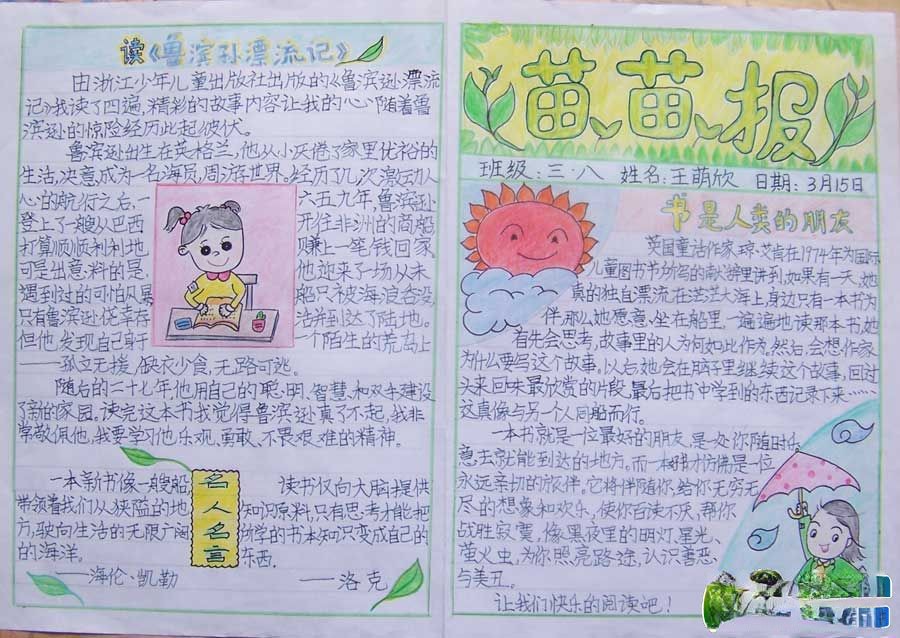 读《鲁滨孙漂流记》
由浙江少年儿童出版社出版的《鲁滨逊漂流
记》我读了四遍,精彩的故事内容让我的心随着鲁
滨逊的惊险经历此起彼伏。
鲁滨逊出生在英格兰,他从小厌倦了家里优裕的
生活,决意成为一名海员,周游世界。经历了几次激动人
心的航行之后,一六五九年,鲁滨逊
登上了一艘从巴西开往非洲的商船
打算顺顺利利地赚上一笔钱回家
可是出意料的是,他迎来了一场从未
遇到过的可怕风暴船只被海浪吞没,
只有鲁滨逊侥幸存活并到达了陆地。
但他发现自己身于一个陌生的荒岛上
——孤立无援,缺衣少食,无路可逃。
随后的二十七年他用自己的聪明、智慧和双手建设
了新的家园。读完这本书我觉得鲁滨逊真了不起,我非
常敬佩他,我要学习他乐观、勇敢、不畏艰难的精神。
一本新书像一艘船
带领着我们从狭隘的地
方,驶向生活的无限广阔
的海洋。
——海伦·凯勒
名人名言
读书仅向大脑提供
知识原料,只有思考才能把
所学的书本知识变成自己的
东西.
——洛克
苗苗报
班级:三·八 姓名:王萌欣 日期:3月15日
书是人类的朋友
英国童话作家琼·艾肯在1974年为国际
儿童图书节所写的献辞里讲到,如果有一天,她
真的独自漂流在茫茫大海上,身边只有一本书为
伴,那么她愿意坐在船里,一遍遍地读那本书,她
有先会思考,故事里的人为何如此作为。然后,会想作家
为什么要写这个故事,以后她会在脑子里继续这个故事,回过
头来回味最欣赏的片段,最后把书中学到的东西记录下来……
这真像与另一个人同船而行。
一本书就是一位最好的朋友,是一处你随时乐
意去就能到达的地方。而一本好书仿佛是一位
永远亲切的旅伴。它将伴随你,给你无穷无
尽的想象和欢乐,使你百读不厌,帮你
战胜寂寞,像黑夜里的明灯、星光、
萤火虫,为你照亮路途,认识善恶
与美丑。
让我们快乐的阅读吧!